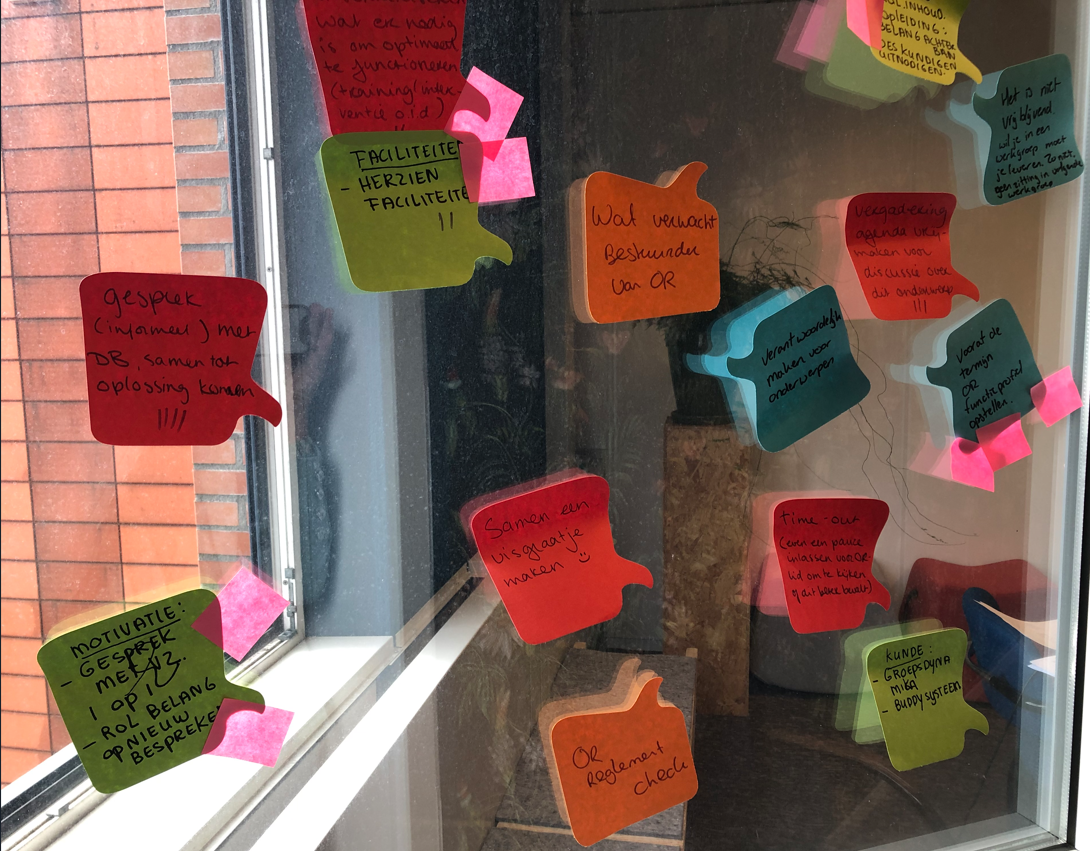 wat er nodig
is om optimaal
te functioneren
(training/inter-
ventie o.i.d.)
11
OPLEIDING:
BELANG ACHTER
BAN
DESKUNDIGEN
UITNODIGEN.
Het is niet
vrijblijvend.
wil je in een
werkgroep moet
je leveren. Zo niet,
geen zitting in volgende
werkgroep
FACILITEITE
- HERZIEN
FACILITEITE
11
Wat verwacht
Bestuurder
van OR
vergadering
agenda vrij-
maken voor
discussie over
dit onderwerp
111
gesprek
(informeel) met
DB, samen tot
oplossing komen
1111
verantwoordelijk
maken voor
onderwerpen
vooraf de
termijn
OR
functieprofiel
opstellen.
Samen een
visgraatje
maken :)
time-out
(even een pauze
inlassen voor OR-
lid om te kijken
of dit beter bevalt)
MOTIVATIE:
- GESPREK
MET
1 op 1
- ROL BELANG
OPNIEUW
BESPREKE
KUNDE:
- GROEPSDYNA
MIKA
- BUDDYSYSTEEM
OR
Reglement
check